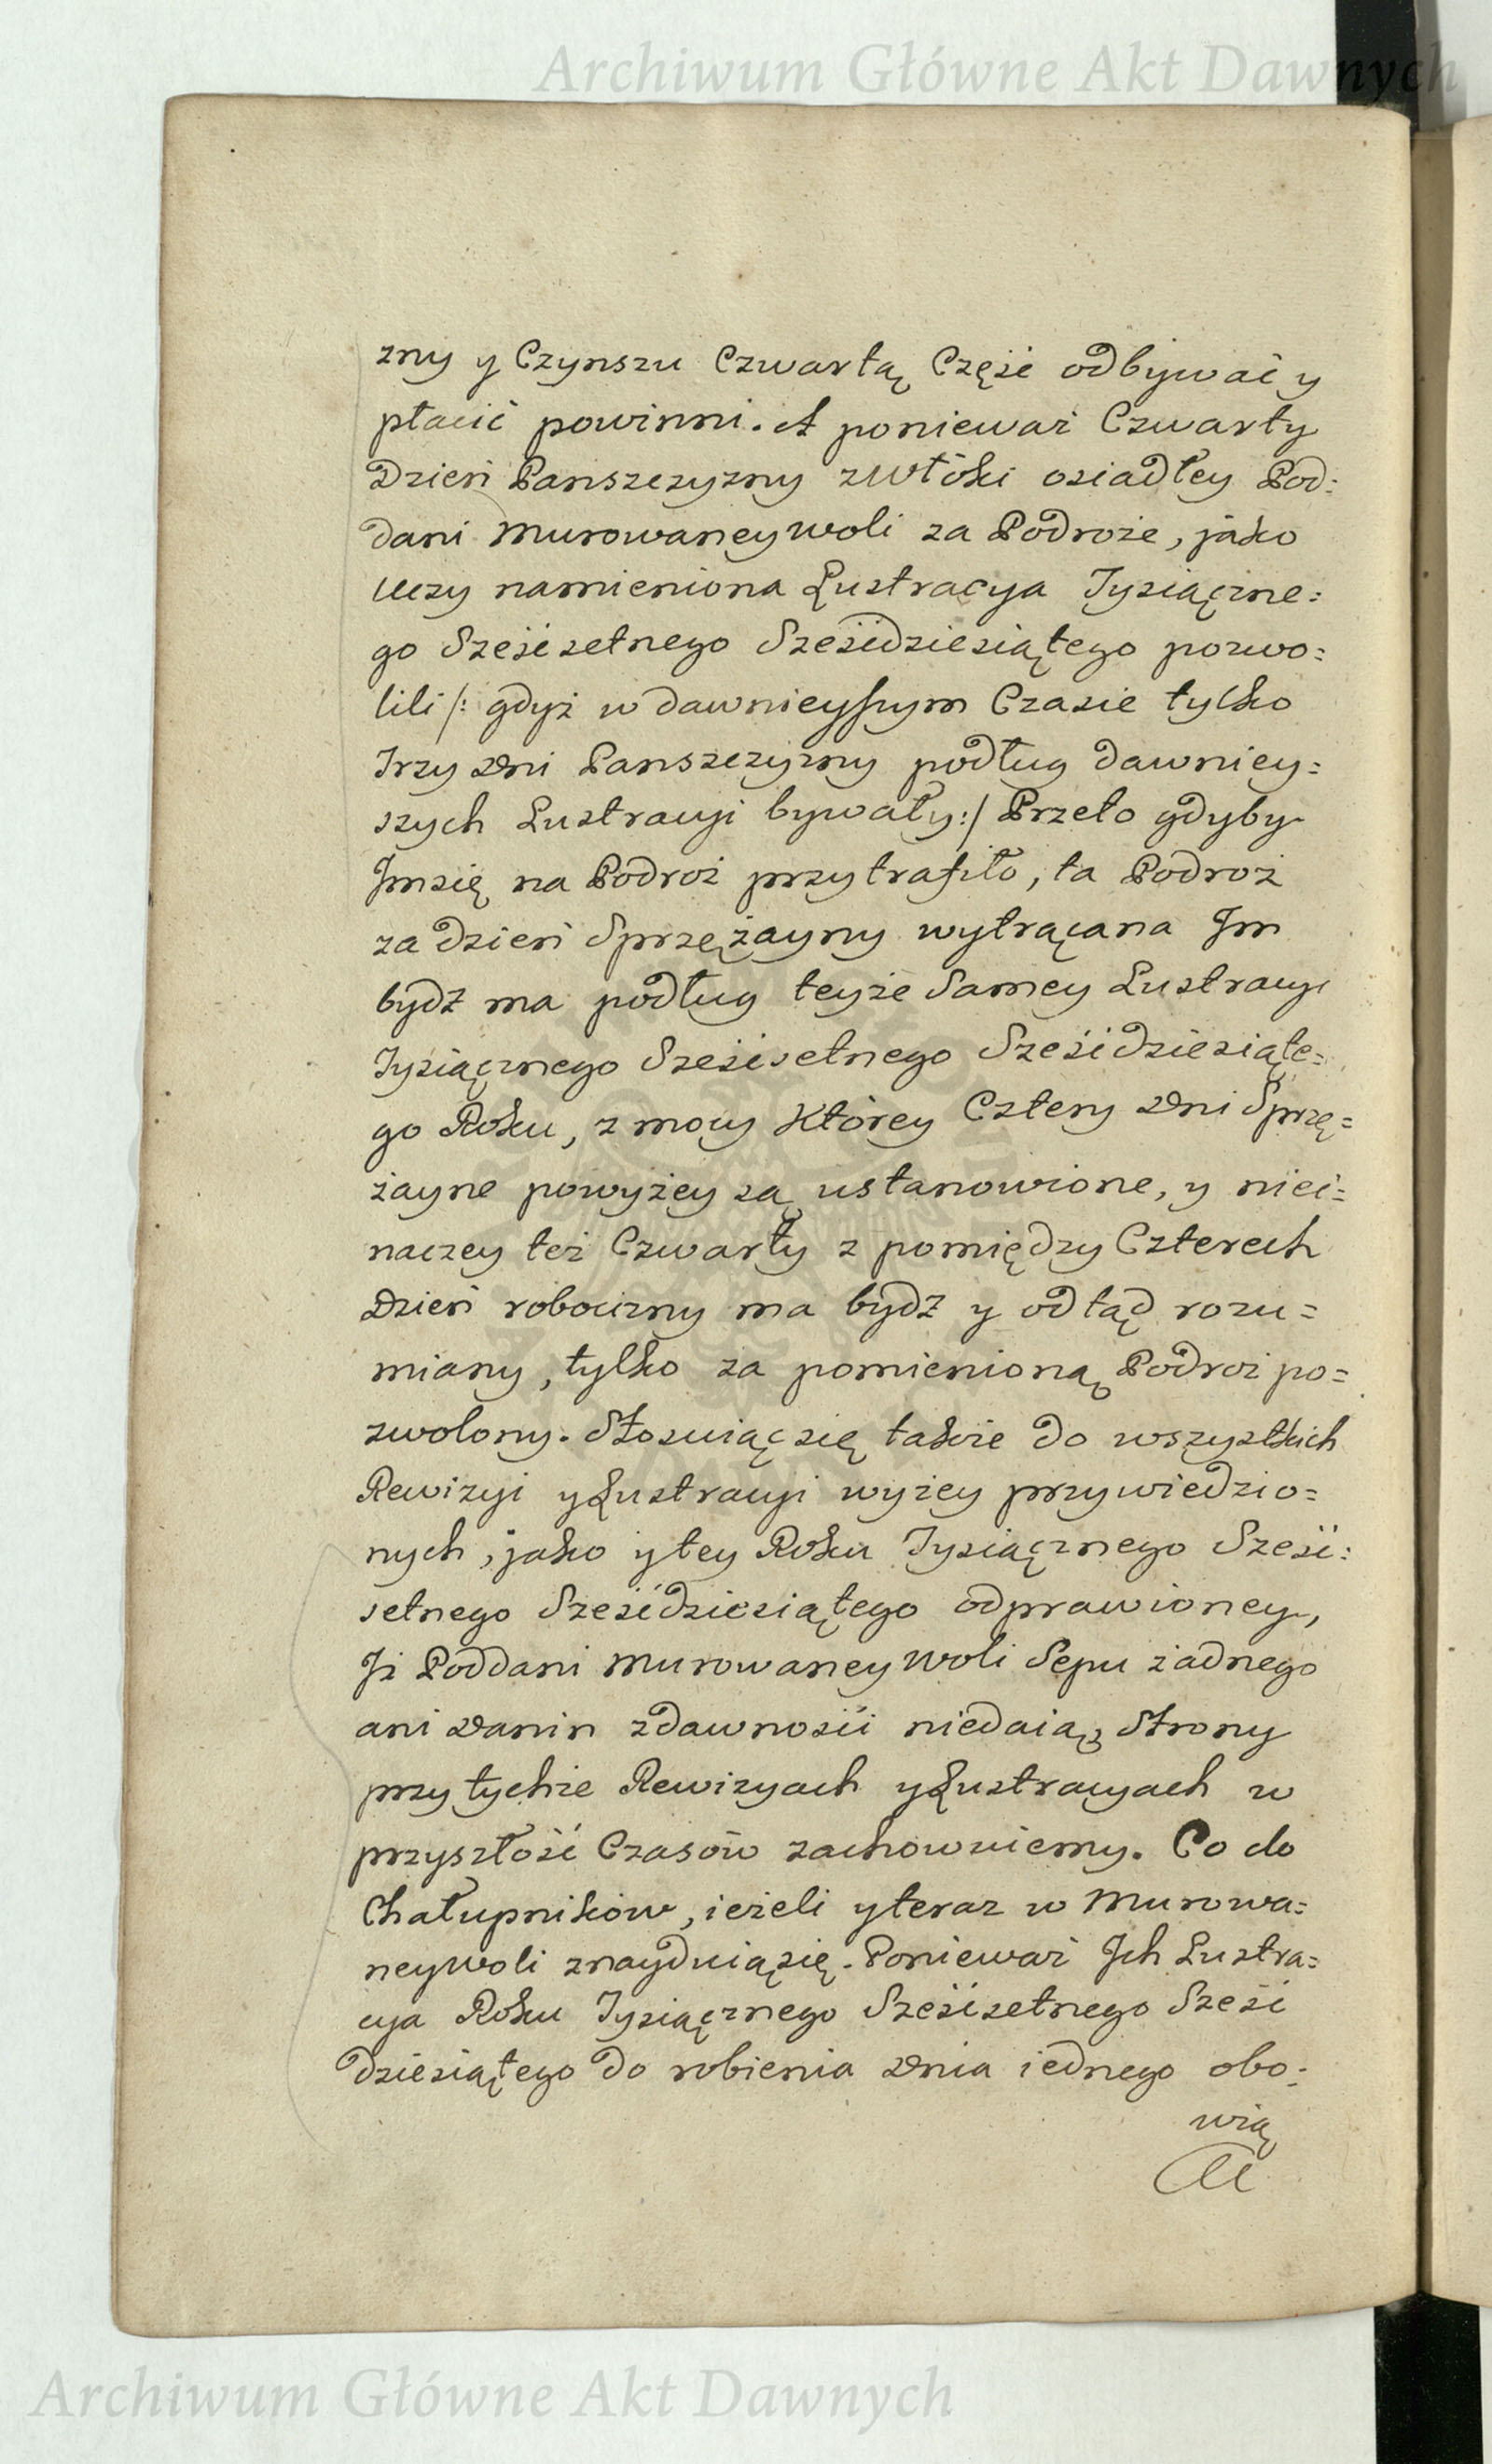 Archiwum Główne Akt Dawnych
zny y Czynszu Czwartą Część odbywać y
płacić powinni. A ponieważ Czwarty
Dzień Panszczyzny zwłóki osiadłey Pod:
dani Murowaney woli za Podroże, jako
uczy namieniona Lustracya Tysiączne:
go Sześćsetnego Sześćdziesiątego pozwo:
lili /: gdyż w dawnieyszym Czasie tylko
Trzy Dni Panszczyzny podług dawniey:
szych Lustracyi bywały :/ Przeto gdyby
Jmsię na Podroż przytrafiło, ta Podroż
za dzień Sprzężayny wytrącana Jm
bydź ma podług teyże Samey Lustracyi
Tysiącznego Sześćsetnego Sześćdziesiąte=
go Roku, z mocy Którey Cztery Dni Sprzę=
żayne powyżey są ustanowione, y niei=
naczey też Czwarty z pomiędzy Czterech
Dzień robocizny ma bydź y odtąd rozu=
miany, tylko za pomienioną Podroż po=
zwolony. Stosuiąc się także do wszystkich
Rewizyi y Lustracyi wyżey przywiedzio=
nych, jako y tey Roku Tysiącznego Sześć:
setnego Sześćdziesiątego odprawioney,
Jż Poddani Murowaney Woli Sepu żadnego
ani Danin zdawności niedaią, Strony
przy tychże Rewizyach y Lustracyach w
przyszłość Czasów zachowuiemy. Co do
Chałupników, ieżeli y teraz w Murowa:
neywoli znayduiąsię. Ponieważ Jch Lustra:
cya Roku Tysiącznego Sześćsetnego Sześć
dziesiątego do robienia Dnia iednego obo:
wią
Archiwum Główne Akt Dawnych